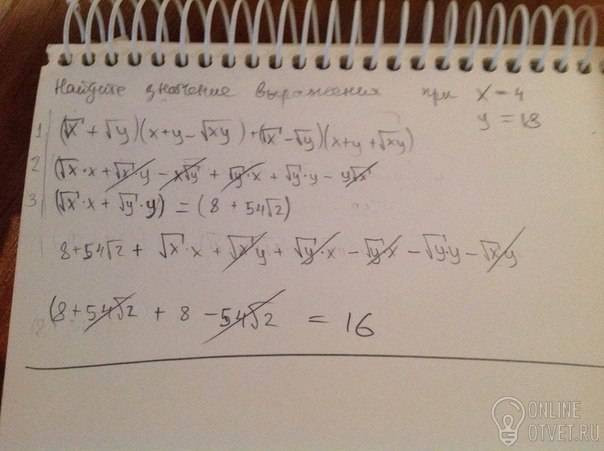 Найдите значение выражения при x = 4
y = 18
1) (√x + √y)(x + y - √xy) + (√x - √y)(x + y + √xy)
2) (√x · x + √x · y - x√y + √y · x + √y · y - y√x
3) (√x · x + √y · y) = (8 + 54√2)
8 + 54√2 + √x · x + √x y + √y · x - √y · x - √y · y - √x y
(8 + 54√2 + 8 - 54√2 = 16
ONLINE
OTVET.RU